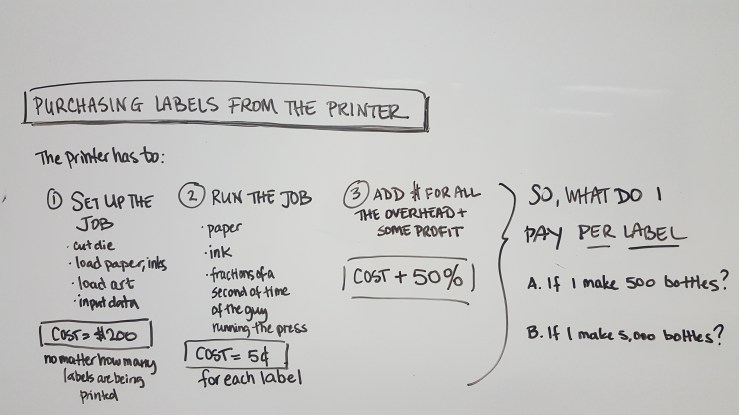 PURCHASING LABELS FROM THE PRINTER
The printer has to:
① SET UP THE
JOB
· cut die
· load paper, inks
· load art
· input data
COST = $200
no matter how many
labels are being
printed
② RUN THE JOB
· paper
· ink
· fractions of a
second of time
of the guy
running the press
COST = 5¢
for each label
③ ADD $ FOR ALL
THE OVERHEAD +
SOME PROFIT
COST + 50%
SO, WHAT DO I
PAY PER LABEL
A. If I make 500 bottles?
B. If I make 5,000 bottles?